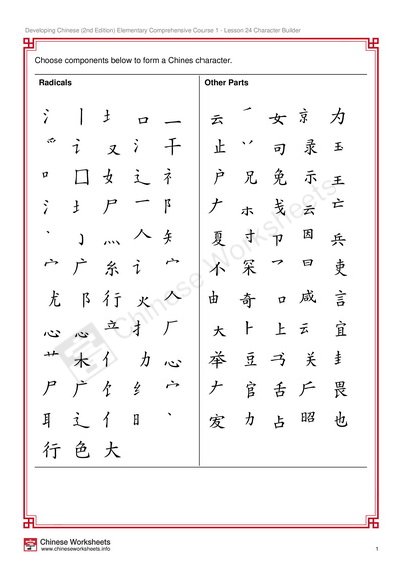 Developing Chinese (2nd Edition) Elementary Comprehensive Course 1 - Lesson 24 Character Builder
Choose components below to form a Chines character.
Radicals
氵 丨 扌 口 一
爫 讠 又 氵 干
口 囗 女 辶 礻
氵 扌 尸 乛 阝
丶 亅 灬 人 矢
宀 广 糸 讠 宀
尢 阝 行 火 人
心 心 立 扌 厂
艹 木 亻 力 心
尸 广 饣 纟 宀
耳 辶 亻 日 丶
行 色 大
Other Parts
云 女 京 为
止 丷 司 录 玉
户 兄 免 示 王
𠂇 戈 云 亡
夏 寸 卩 因 兵
不 罙 乛 曰 吏
由 奇 口 咸 言
大 卜 上 云 宜
举 豆 关 圭
𠂇 官 舌 畏
友 力 占 昭 也
Chinese Worksheets
Chinese Worksheets
www.chineseworksheets.info
1